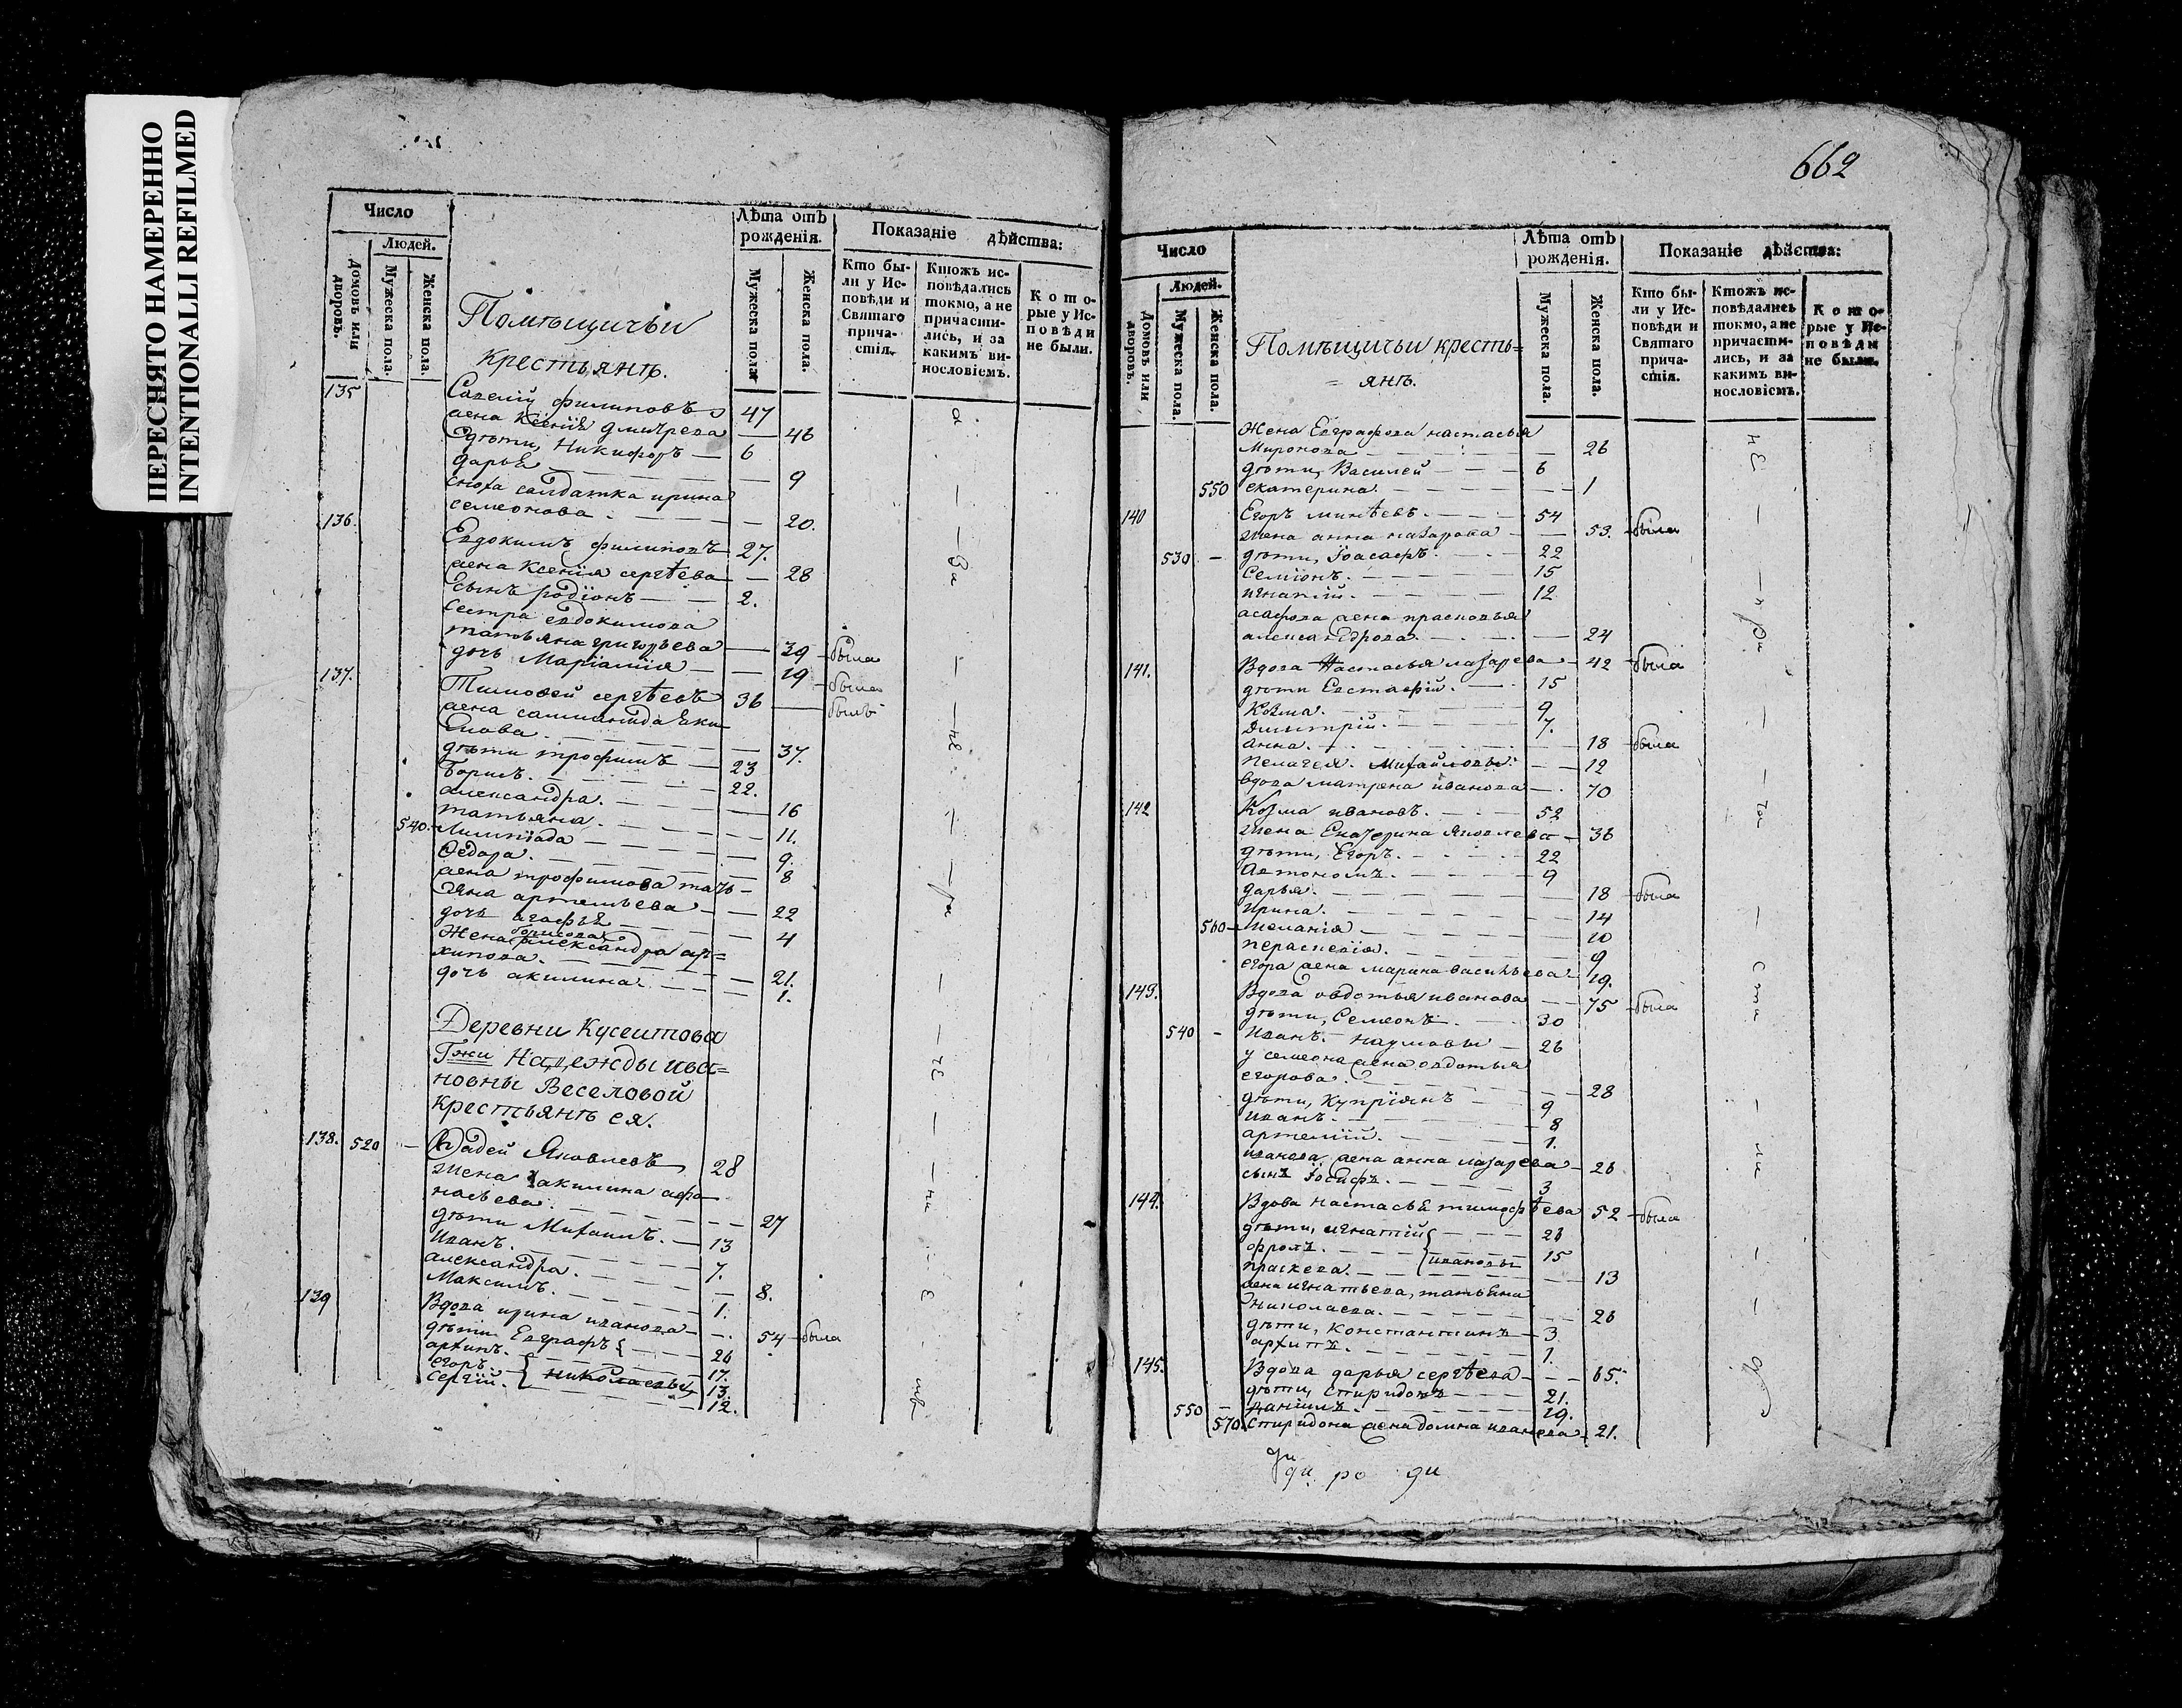 ПЕРЕСНЯТО НАМЕРЕННО
INTENTIONALLI REFILMED
Число
Людей.
Домовъ или дворовъ.
Мужеска пола.
Женска пола.
Помѣщичьи
крестьянѣ.
Лѣта отъ рожденія.
Мужеска пола
Женска пола.
Показаніе дѣйства:
Кто были у Исповѣди и Святаго причастія.
Ктожъ исповѣдались токмо, а не причастились, и за какимъ винословіемъ.
Которые у Исповѣди не были.
135 Савелiй филиповъ 47
жена Ксенія дмитрева — 46
дѣти, Никифоръ — 6
дарья — 9
сноха салдатка ирина
семеонова. — 20.
136. Евдокимъ филиповъ 27.
жена Ксенія сергѣева — 28
Сынъ родіонъ — 2.
Сестра евдокимова
татьяна григорьева — 39 была
дочь Маріамія — 19 была
137. Тимофей сергѣевъ 36 — былъ
жена саламанида Еки
мова. — 37.
дѣти трофимъ — 23
Борисъ. — 22.
александра. — 16
татьяна. — 11.
540. Лимпіада — 9.
Ѳедора. — 8
жена трофимова тать
яна артемьева — 22
дочь агафья — 4
борисова
Жена александра ар=
хипова. — 21.
дочь акилина — 1.
Деревни Кусеитова
Гжи Надежды ива=
новны Веселовой
крестьянѣ ея.
138. 520 — Фадей Яковлевъ 28
жена акилина афа
насьева. — 27
дѣти Михаилъ. — 13
Иванъ. — 7.
александра. — 8.
Максимъ. — 1.
139 Вдова ирина иванова — 54 была
дѣти Евграфъ — 26
архипъ. — 17.
егоръ. — николаевы 13.
Сергій. — 12.
662
Число
Людей.
Домовъ или дворовъ.
Мужеска пола.
Женска пола.
Помѣщичьи кресть=
= янѣ.
Лѣта отъ рожденія.
Мужеска пола.
Женска пола.
Показаніе дѣйства:
Кто были у Исповѣди и Святаго причастія.
Ктожъ исповѣдались токмо, а не причастились, и за какимъ винословіемъ.
Которые у Исповѣди не были.
Жена Евграфова настасья
Миронова — 26
дѣти, Василей — 6
550 екатерина. — 1
140 Егоръ минѣевъ. — 54
жена анна назарова — 53. была
530 — дѣти, Іоасафъ. — 22
Семіонъ. — 15
игнатій. — 12
асафова жена прасковья
александрова. — 24
141. Вдова Настасья лазарева — 42 была
дѣти Евстафій. — 15
Козма. — 9
Дмитрій. — 7.
анна. — 18 была
пелагея. Михайловы. — 12
вдова матрена иванова — 70
142 Козма ивановъ. — 52
жена Екатерина Яковлева — 36
дѣти, Егоръ. — 22
Автономъ. — 9
дарья. — 18 была
Ирина. — 14
560 — меланія — 10
перасковія. — 9
егора жена марина васильева 19.
143. Вдова овдотья иванова — 75 была
дѣти, Семеонъ. — 30
540 — Иванъ. наумовы — 26
у семеона жена овдотья
егорова. — 28
дѣти, Купріянъ — 9
иванъ. — 8
артемій. — 1.
иванова жена анна лазарева — 26
сынъ Іосифъ. — 3
144. Вдова настасья тимофѣева 52 была
дѣти, игнатій — 26
фролъ. — ивановы 15
праскева. — 13
жена игнатьева, татьяна
николаева. — 26
дѣти, константинъ — 3
архипъ. — 1.
145. Вдова дарья сергѣева — 65.
дѣти, спиридонъ — 21.
550 — даниилъ — 19.
570 спиридона жена домна иванова 21.